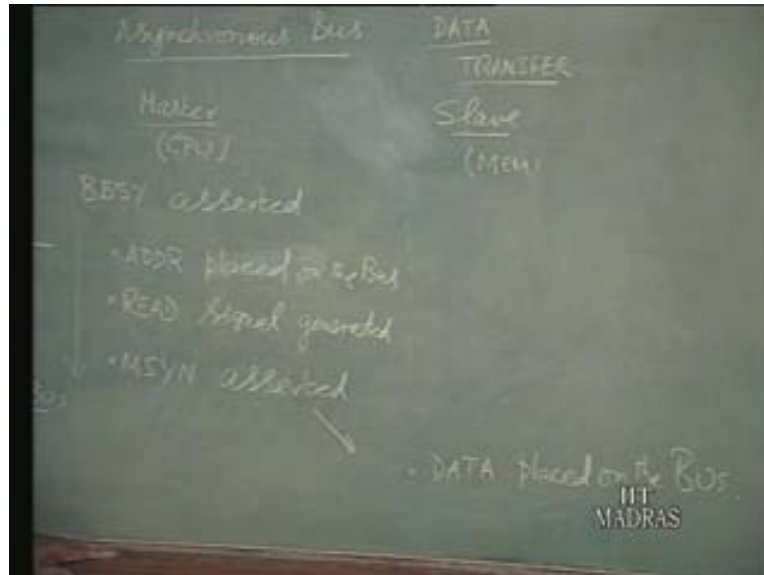 Asynchronous Bus DATA
TRANSFER
Master Slave
(CPU) (MEM)
BBSY asserted
• ADDR placed on the Bus
• READ Signal generated
• MSYN asserted
Bus
• DATA placed on the Bus.
IIT
MADRAS